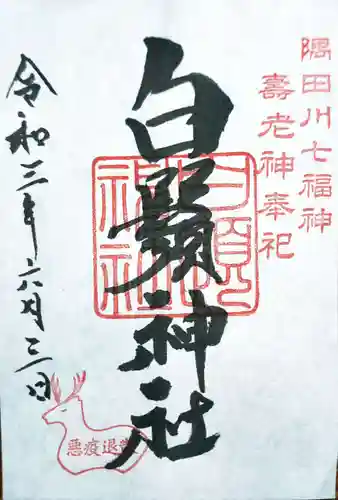 隅田川七福神
壽老神奉祀
白鬚神社
令和三年六月三日
白鬚神社
悪疫退散